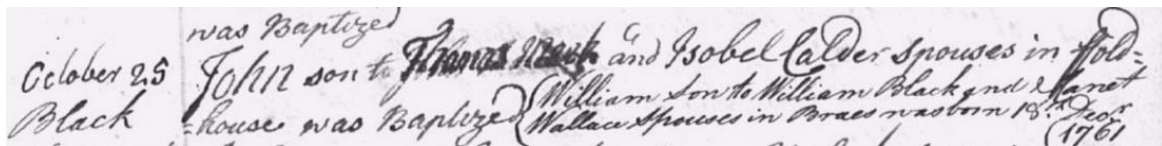 was Baptized
October 25 John son to Thomas and Isobel Calder spouses in ffold=
Black =house was Baptized (William Son to William Black and Janet
Wallace Spouses in Braes was born 18th Decr
(1761